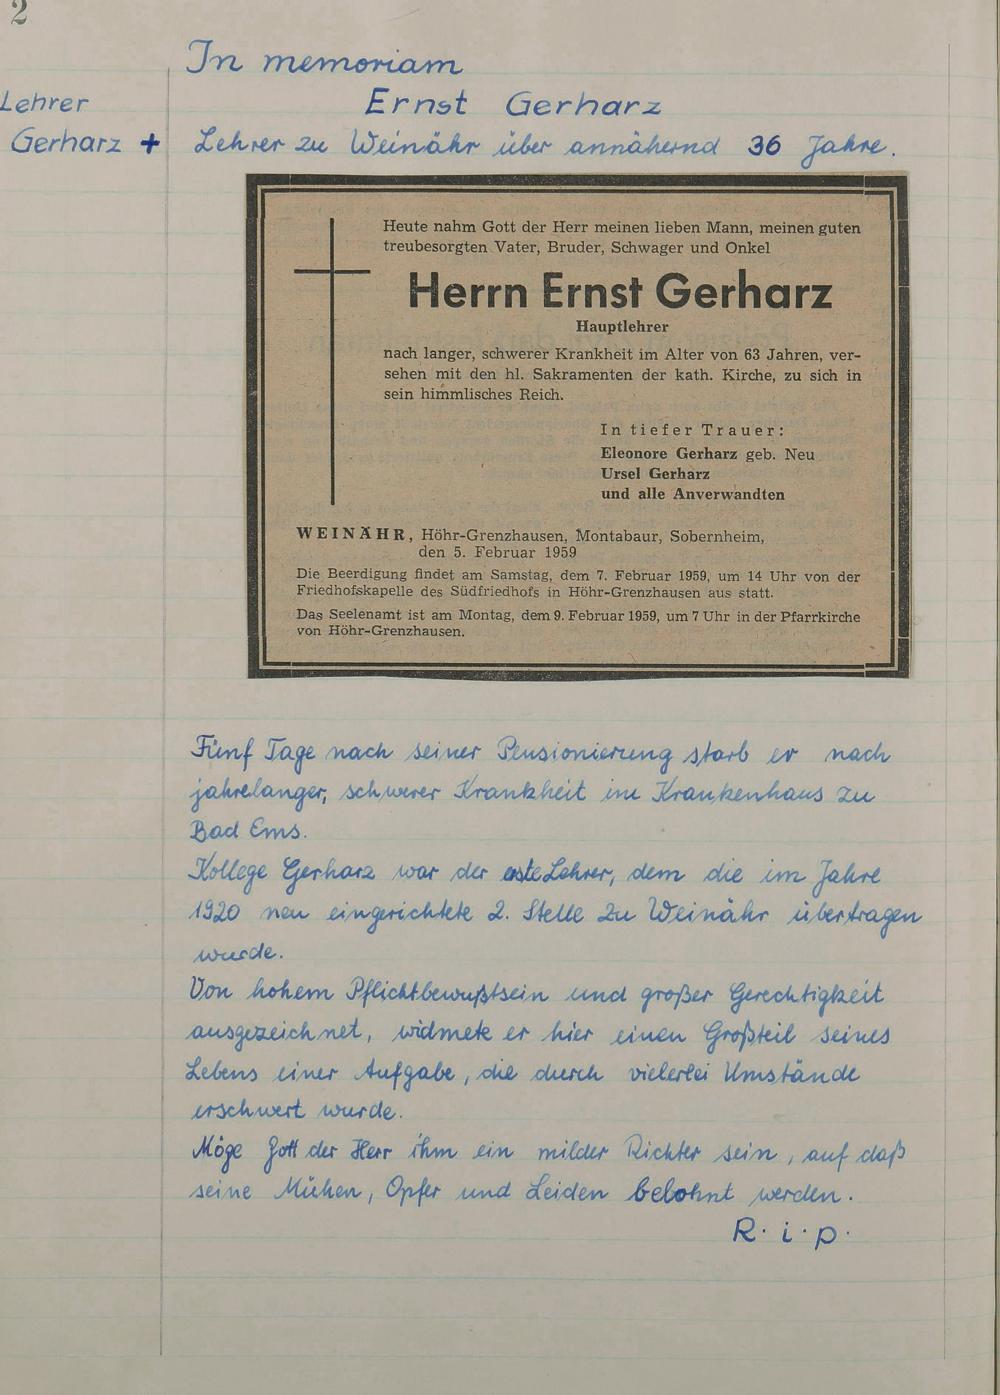 2
In memoriam
Lehrer
Ernst Gerharz
Gerharz +
Lehrer zu Weinähr über annähernd 36 Jahre.
Heute nahm Gott der Herr meinen lieben Mann, meinen guten
treubesorgten Vater, Bruder, Schwager und Onkel
Herrn Ernst Gerharz
Hauptlehrer
nach langer, schwerer Krankheit im Alter von 63 Jahren, ver-
sehen mit den hl. Sakramenten der kath. Kirche, zu sich in
sein himmlisches Reich.
In tiefer Trauer:
Eleonore Gerharz geb. Neu
Ursel Gerharz
und alle Anverwandten
WEINÄHR, Höhr-Grenzhausen, Montabaur, Sobernheim,
den 5. Februar 1959
Die Beerdigung findet am Samstag, dem 7. Februar 1959, um 14 Uhr von der
Friedhofskapelle des Südfriedhofs in Höhr-Grenzhausen aus statt.
Das Seelenamt ist am Montag, dem 9. Februar 1959, um 7 Uhr in der Pfarrkirche
von Höhr-Grenzhausen.
Fünf Tage nach seiner Pensionierung starb er nach
jahrelanger, schwerer Krankheit im Krankenhaus zu
Bad Ems.
Kollege Gerharz war der erste Lehrer, dem die im Jahre
1920 neu eingerichtete 2. Stelle zu Weinähr übertragen
wurde.
Von hohem Pflichtbewußtsein und großer Gerechtigkeit
ausgezeichnet, widmete er hier einen Großteil seines
Lebens einer Aufgabe, die durch vielerlei Umstände
erschwert wurde.
Möge Gott der Herr ihm ein milder Richter sein, auf daß
seine Mühen, Opfer und Leiden belohnt werden.
R. i. p.